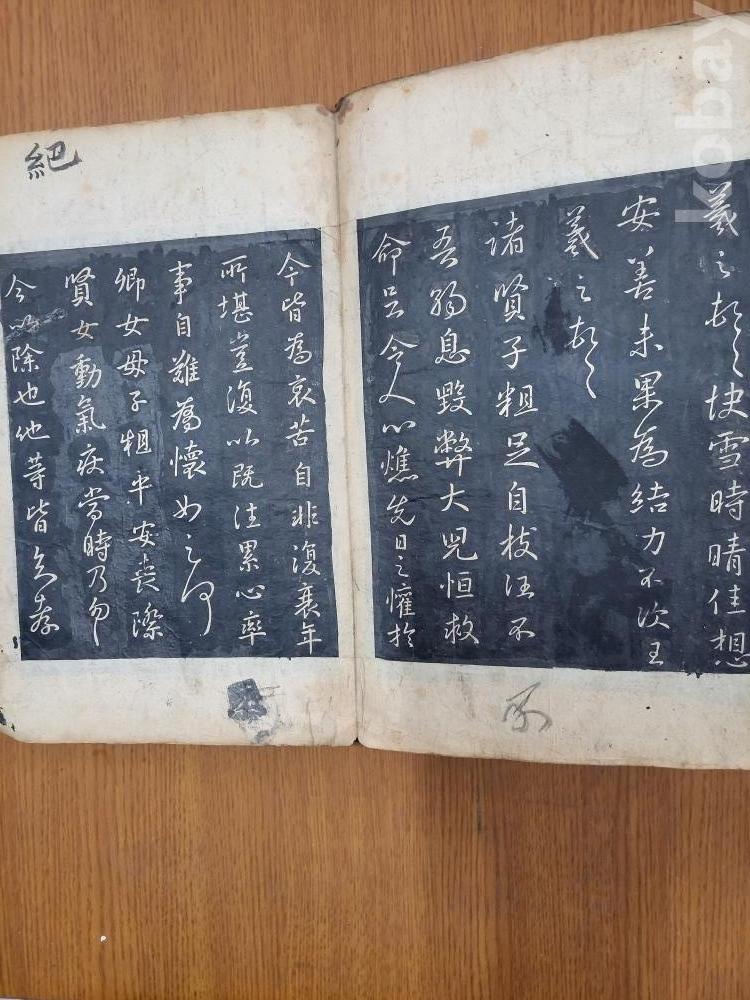 羲之頓首快雪時晴佳想
安善未果為結力不次王
羲之頓首
諸賢子粗足自枝汪不
吾弱息毀弊大兕恒救
命呂令人心燋先日之懽於
今皆為哀苦自非復衰年
所堪豈復以既往累心率
事自難為懷如之何
卿女母子粗平安喪際
賢女動氣疾當時乃
今以除也他等皆
紀
kobay